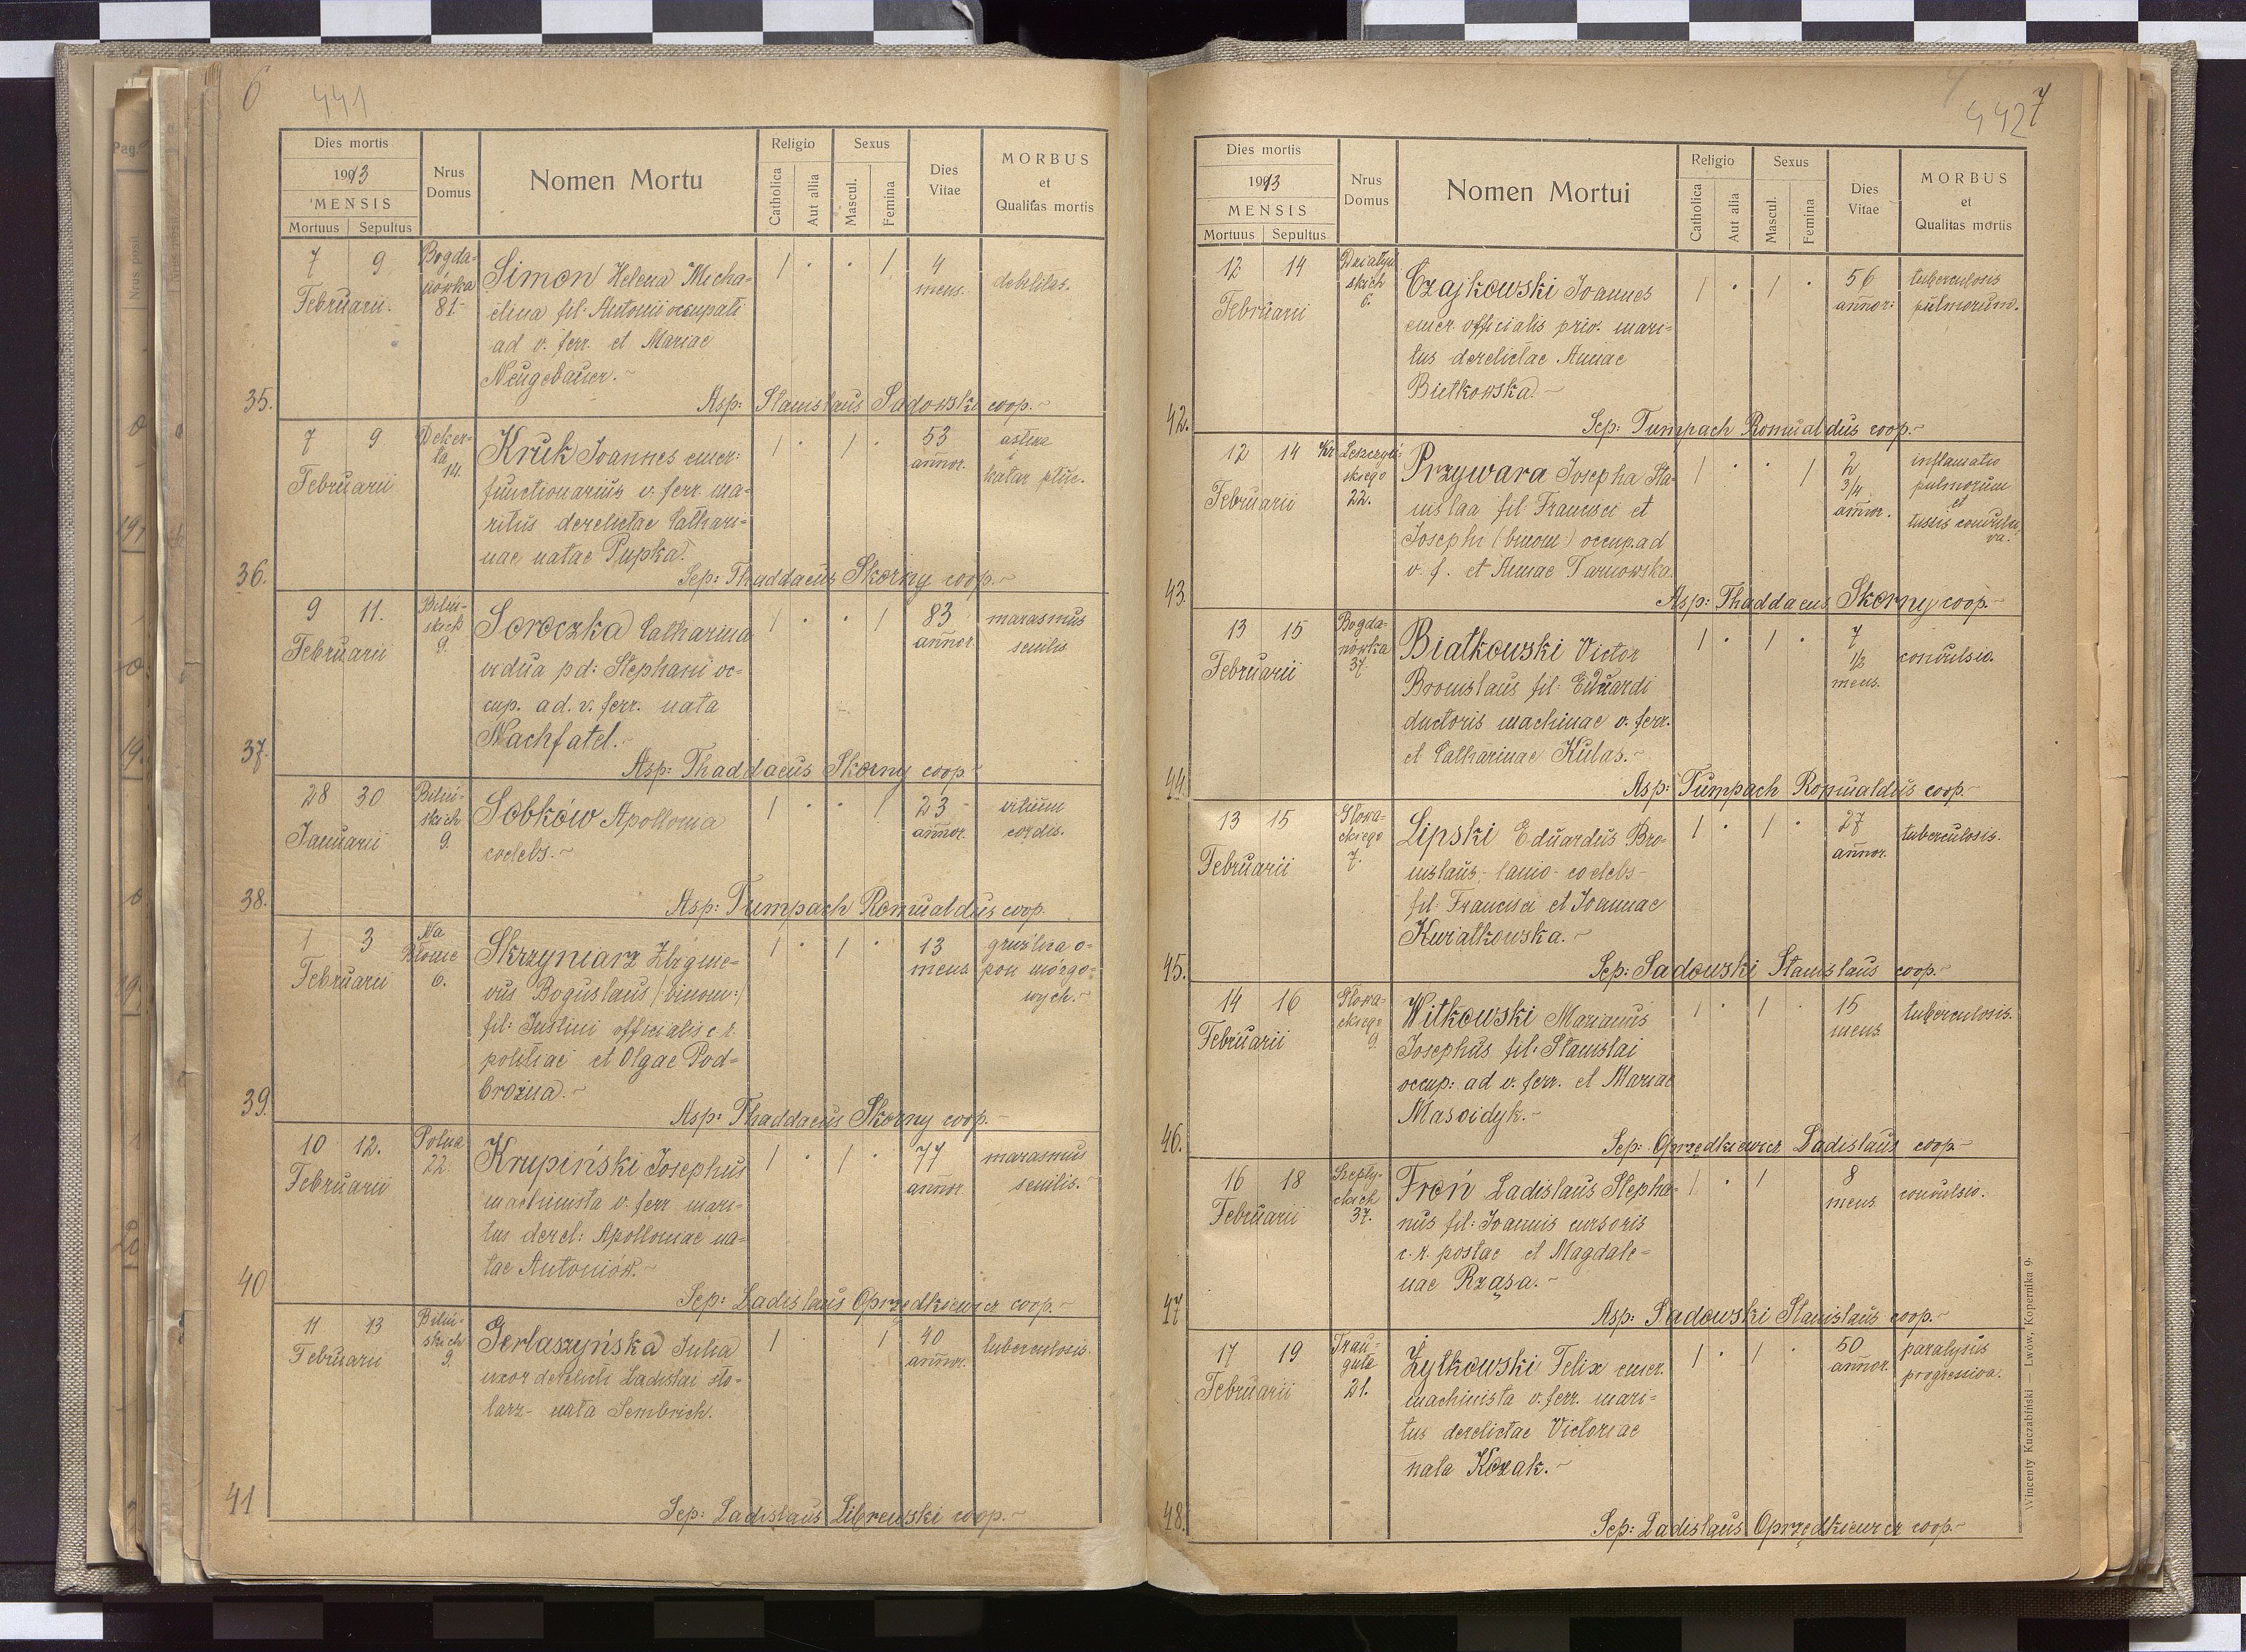 6
441
Dies mortis
1913
MENSIS
Mortuus Sepultus
Nrus
Domus
Nomen Mortu
Religio
Catholica
Aut allia
Sexus
Mascul.
Femina
Dies
Vitae
MORBUS
et
Qualitas mortis
7 9
Februarii.
Bogda-
nówka
81.
Simon Helena Micha-
elina fil. Antonii occupati
ad v. ferr. et Mariae
Neugebauer.
1 . . 1
4
mens.
debilitas.
35.
Asp: Stanislaus Sadowski coop.
7 9
Februarii
Deker-
ta
14.
Kruk Joannes emer:
functionarius v. ferr. ma-
ritus derelictae Cathari-
nae natae Pupka.
1 . 1 .
53
annor.
astma
i
katar płuc.
36.
Sep: Thaddaeus Skorny coop.
9 11.
Februarii
Biliń-
skich
9.
Soroczka Catharina
vidua pd: Stephani oc-
cup. ad. v. ferr. nata
Nachfatel.
1 . . 1
83
annor.
marasmus
senilis
37.
Asp: Thaddaeus Skorny coop.
28 30
Januarii
Biliń-
skich
9.
Sobków Apollonia
coelebs.
1 . . 1
23
annor.
vitium
cordis.
38.
Asp: Tumpach Romualdus coop.
1 3
Februarii
Na
Błonie
6.
Skrzyniarz Zbignie-
vus Boguslaus (binom:)
fil: Justini officialis c. r.
politiae et Olgae Pod-
brożna.
1 . 1 .
13
mens
gruźlica o-
pon mózgo-
wych.
39.
Asp: Thaddaeus Skorny coop.
10 12.
Februarii
Polna
22.
Krupiński Josephus
machinista v. ferr. mari-
tus derel: Apolloniae na-
tae Antoniów.
1 . 1 .
77
annor
marasmus
senilis.
40
Sep: Ladislaus Oprzędkiewicz coop.
11 13
Februarii
Biliń-
skich
9.
Jerlaszyńska Julia
uxor derelicti Ladislai sto-
larz - nata Sembrich.
1 . 1
40
annor.
tuberculosis.
41
Sep: Ladislaus Librewski coop.
7
442
Dies mortis
1913
MENSIS
Mortuus Sepultus
Nrus
Domus
Nomen Mortui
Religio
Catholica
Aut alia
Sexus
Mascul.
Femina
Dies
Vitae
MORBUS
et
Qualitas mortis
12 14
Februarii
Działyń
skich
6.
Czajkowski Joannes
emer. officialis priv. mari-
tus derelictae Annae
Bietkowska.
1 . 1 .
56
annor:
tuberculosis
pulmorum.
42.
Sep: Tumpach Romualdus coop.
12 14
Februarii
Kr Leszczyń
skiego
22.
Przywara Josepha Sta-
nislaa fil Francisci et
Josephi (binom) occup.ad
v. f. et Annae Tarnowska.
1 . . 1
2
3/4
annor.
inflamatio
pulmorum
et
tussis convulsi
va.
43.
Asp: Thaddaeus Skorny coop.
13 15
Februarii
Bogda-
nówka
37.
Białkowski Victor
Bronislaus fil: Eduardi
ductoris machinae v. ferr.
et Catharinae Kulas.
1 . 1 .
7
1/2
mens.
convulsio.
44.
Asp: Tumpach Romualdus coop.
13 15
Februarii
Głowa-
ckiego
7.
Lipski Eduardus Bro-
nislaus - lanio - coelebs -
fil: Francisci et Joannae
Kwiatkowska.
1 . 1 .
27
annor.
tuberculosis.
45.
Sep: Sadowski Stanislaus coop.
14 16
Februarii
Głowa-
ckiego
9.
Witkowski Marianus
Josephus fil: Stanislai
occup: ad v. ferr. et Mariae
Masoidyk.
1 . 1 .
15
mens.
tuberculosis.
46.
Sep: Oprzędkiewicz Ladislaus coop.
16 18
Februarii
Szepty-
ckich
37.
Froń Ladislaus Stepha-
nus fil: Joannis cursoris
c. r. postae et Magdale-
nae Rząsa.
1 . 1
8
mens.
convulsio.
47
Asp: Sadowski Stanislaus coop.
17 19
Februarii
Trau-
guta
21.
Żytkowski Felix emer.
machinista v. ferr. mari-
tus derelictae Victoriae
nata Kozak.
1 . 1 .
50
annor.
paralysis
progressiva.
48.
Sep: Ladislaus Oprzędkiewicz coop.
Wincenty Kuczabiński — Lwów, Kopernika 9.